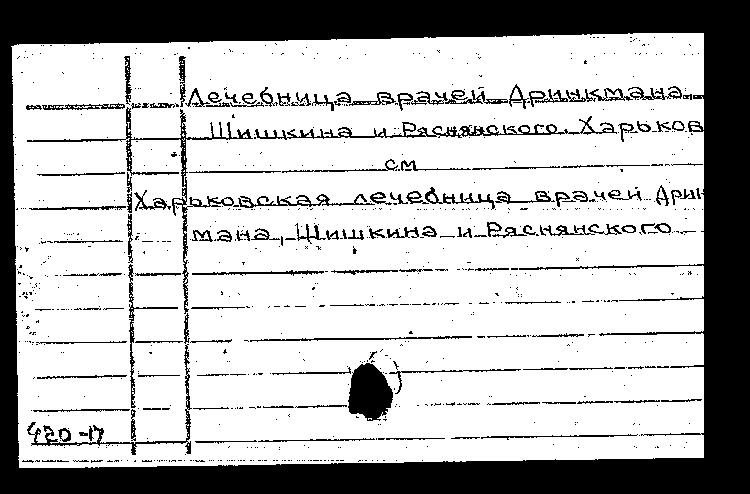 Лечебница врачей Дринкмана,
Шишкина и Ряснянского. Харьков
см
Харьковская лечебница врачей Дрин
мана, Шишкина и Ряснянского
420-17